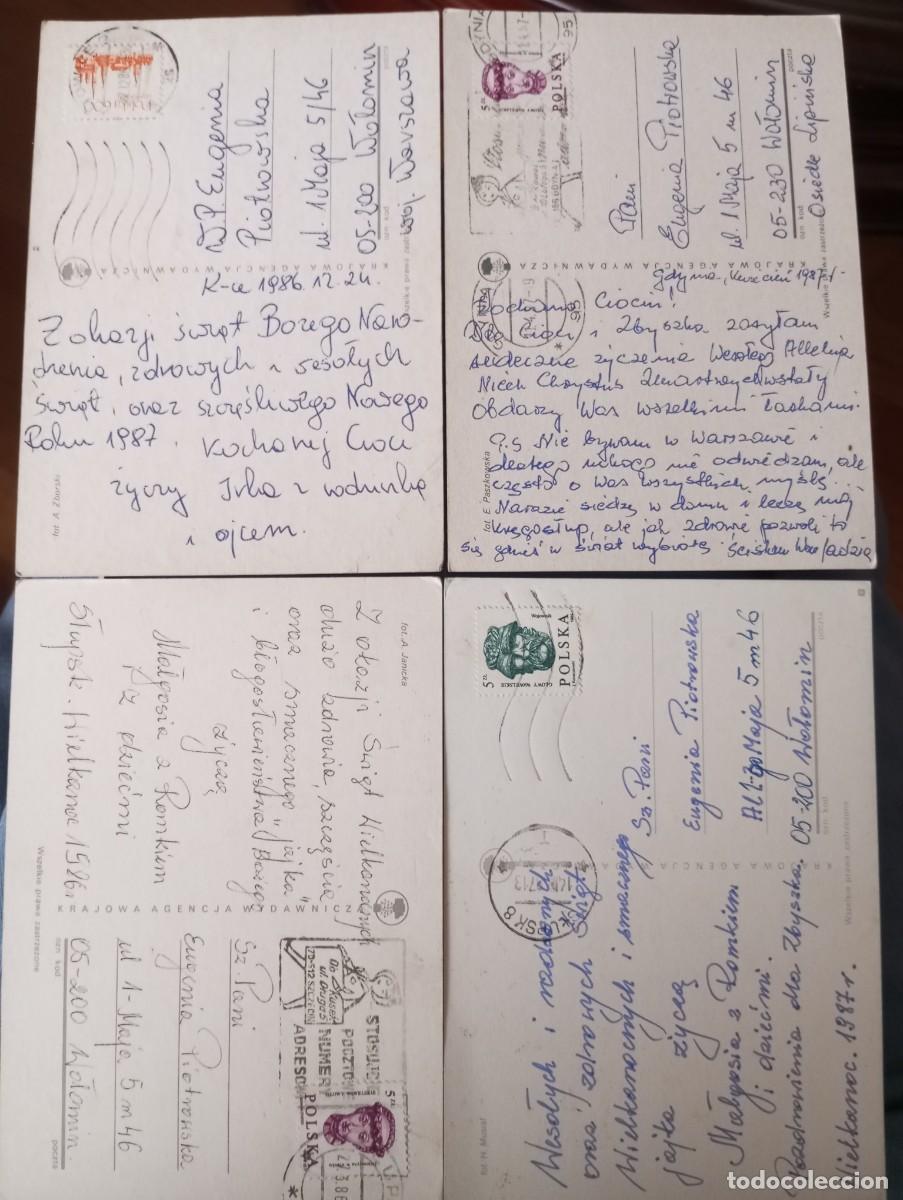 W.P. Eugenia
Piotrowska
ul. 1 Maja 5/46
05-200 Wołomin
woj. Warszawa
ozn. kod
poczta
Wszelkie prawa zastrzeżone
KRAJOWA AGENCJA WYDAWNICZA
K-ce 1986.12.24.
Z okazji świąt Bożego Naro-
dzenia, zdrowych i wesołych
świąt, oraz szczęśliwego Nowego
Roku 1987. Kochanej Cioci
życzy Irka z rodzinką
i ojcem.
fot. A. Zborski
POLSKA
5 zł
GDYNIA
95
Pani
Eugenia Piotrowska
ul. 1 Maja 5 m 46
05-230 Wołomin
Osiedle Lipińska
ozn. kod
poczta
Wszelkie prawa zastrzeżone
KRAJOWA AGENCJA WYDAWNICZA
Gdynia, kwiecień 1987 r.
Kochana Ciociu!
i Zbyszka zasyłam
serdeczne życzenia Wesołego Alleluja
Niech Chrystus Zmartwychwstały
Obdarzy Was wszelkimi łaskami.
P.S Nie bywam w Warszawie i
dlatego nikogo nie odwiedzam, ale
często o Was wszystkich myślę...
Narazie siedzę w domu i leczę mój
kręgosłup, ale jak zdrowie pozwoli to
się gdzieś w świat wybiorę. Ściskam Was Jadzia
fot. E. Paszkowska
fot. A. Janicka
Z okazji Świąt Wielkanocnych
dużo zdrowia, szczęścia
oraz smacznego "jajka"
i błogosławieństwa Bożego
życzą
Małgosia z Romkiem
z dziećmi
Słupsk. Wielkanoc 1986r
Wszelkie prawa zastrzeżone
KRAJOWA AGENCJA WYDAWNICZA
STOSUJ
POCZTOWY
NUMER
ADRESOWY
POLSKA
5 zł
Sz. Pani
Eugenia Piotrowska
ul 1-Maja 5 m 46
05-200 Wołomin.
ozn. kod
poczta
Wojownik
GŁOWY WAWELSKIE
5 zł
POLSKA
SK 8
Sz. Pani
Eugenia Piotrowska
Maja 5 m 46
05-200 Wołomin
ozn. kod
poczta
Wszelkie prawa zastrzeżone
Wesołych i radosnych
oraz zdrowych Świąt
Wielkanocnych i smacznego
jajka życzą
Małgosia z Romkiem
i dziećmi.
Pozdrowienia dla Zbyszka.
Wielkanoc. 1987 r.
fot. H. Musiał
todocoleccion